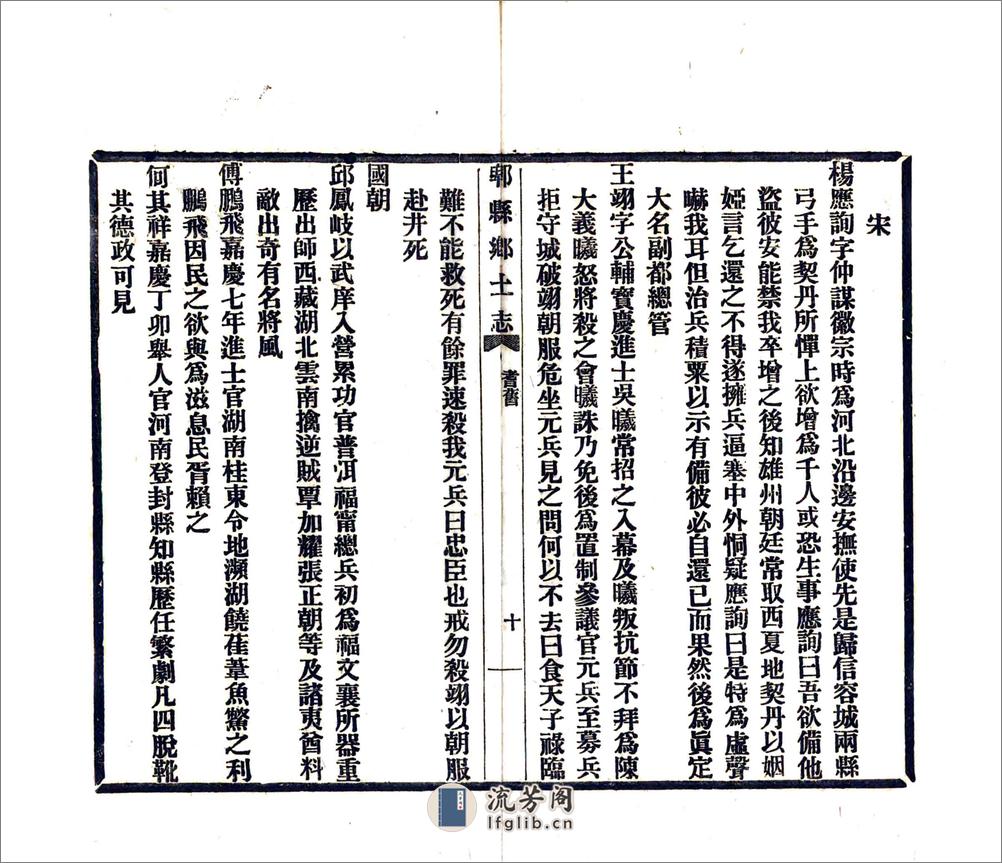 宋
楊應詢字仲謀徽宗時爲河北沿邊安撫使先是歸信容城兩縣
弓手爲契丹所憚上欲增爲千人或恐生事應詢曰吾欲備他
盜彼安能禁我卒增之後知雄州朝廷常取西夏地契丹以姻
婭言乞還之不得遂擁兵逼塞中外恫疑應詢曰是特爲虛聲
嚇我耳但治兵積粟以示有備彼必自還已而果然後爲眞定
大名副都總管
王翊字公輔寶慶進士吳曦常招之入幕及曦叛抗節不拜爲陳
大義曦怒將殺之會曦誅乃免後爲置制參議官元兵至募兵
拒守城破翊朝服危坐元兵見之問何以不去曰食天子祿臨
郫縣鄉土志 耆舊 十
難不能救死有餘罪速殺我元兵曰忠臣也戒勿殺翊以朝服
赴井死
國朝
邱鳳岐以武庠入營累功官普洱福甯總兵初爲福文襄所器重
歷出師西藏湖北雲南擒逆賊覃加耀張正朝等及諸夷酋料
敵出奇有名將風
傅鵬飛嘉慶七年進士官湖南桂東令地瀕湖饒萑葦魚鱉之利
鵬飛因民之欲與爲滋息民胥賴之
何其祥嘉慶丁卯舉人官河南登封縣知縣歷任繁劇凡四脫靴
其德政可見
流芳阁
lfglib.cn